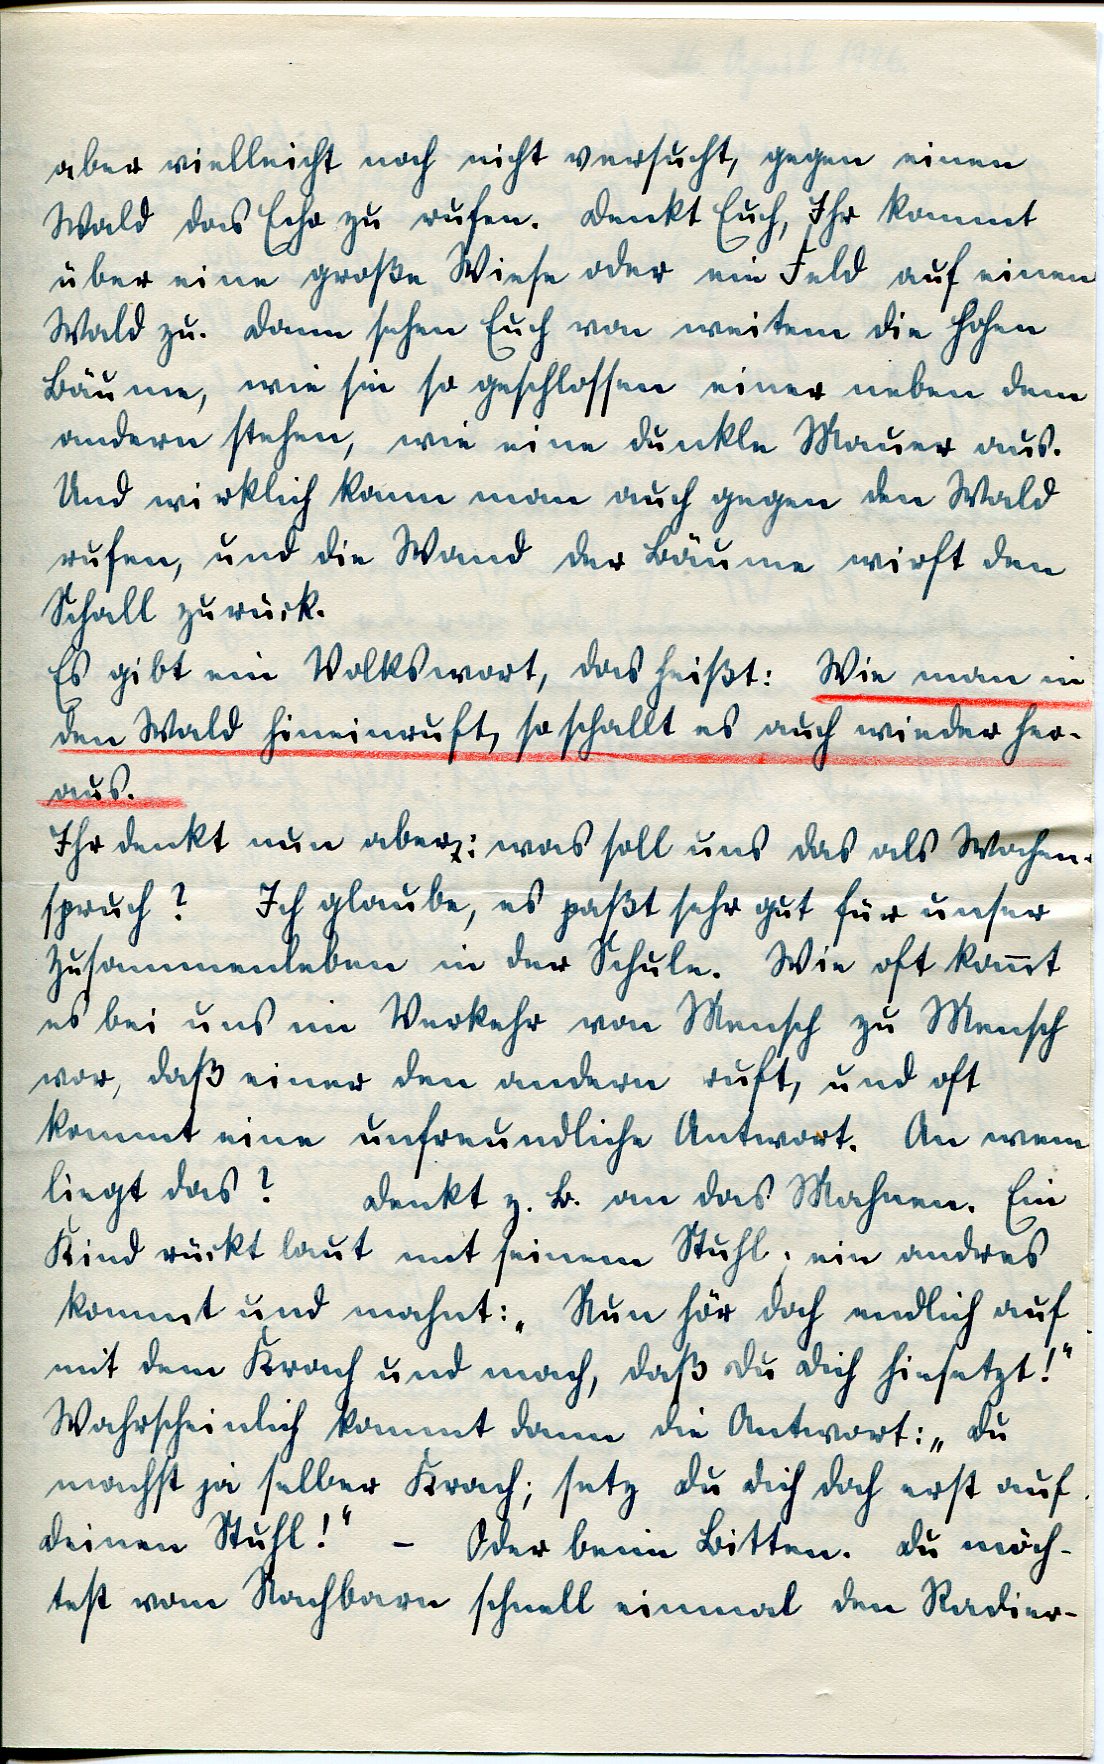 aber vielleicht noch nicht versucht, gegen einen
Wald das Echo zu rufen. Denkt Euch, Ihr kommt
über eine große Wiese oder ein Feld auf einen
Wald zu. Dann sehen Euch von weitem die hohen
Bäume, wie sie so geschlossen einer neben dem
andern stehen, wie eine dunkle Mauer aus.
Und wirklich kann man auch gegen den Wald
rufen, und die Wand der Bäume wirft den
Schall zurück.
Es gibt ein Volkswort, das heißt: Wie man in
den Wald hineinruft, so schallt es auch wieder her-
aus.
Ihr denkt nun aber: was soll uns das als Wochen-
spruch? Ich glaube, es paßt sehr gut für unser
Zusammenleben in der Schule. Wie oft kom̅t
es bei uns im Verkehr von Mensch zu Mensch
vor, daß einer den andern ruft, und oft
kommt eine unfreundliche Antwort. An wem
liegt das? Denkt z. B. an das Mahnen. Ein
Kind rückt laut mit seinem Stuhl; ein andres
kommt und mahnt: „Nun hör doch endlich auf
mit dem Krach und mach, daß Du Dich hinsetzt!“
Wahrscheinlich kommt dann die Antwort: „Du
machst ja selber Krach; setz Du Dich doch erst auf
Deinen Stuhl!“ – Oder beim Bitten. Du möch-
test vom Nachbarn schnell einmal den Radier-